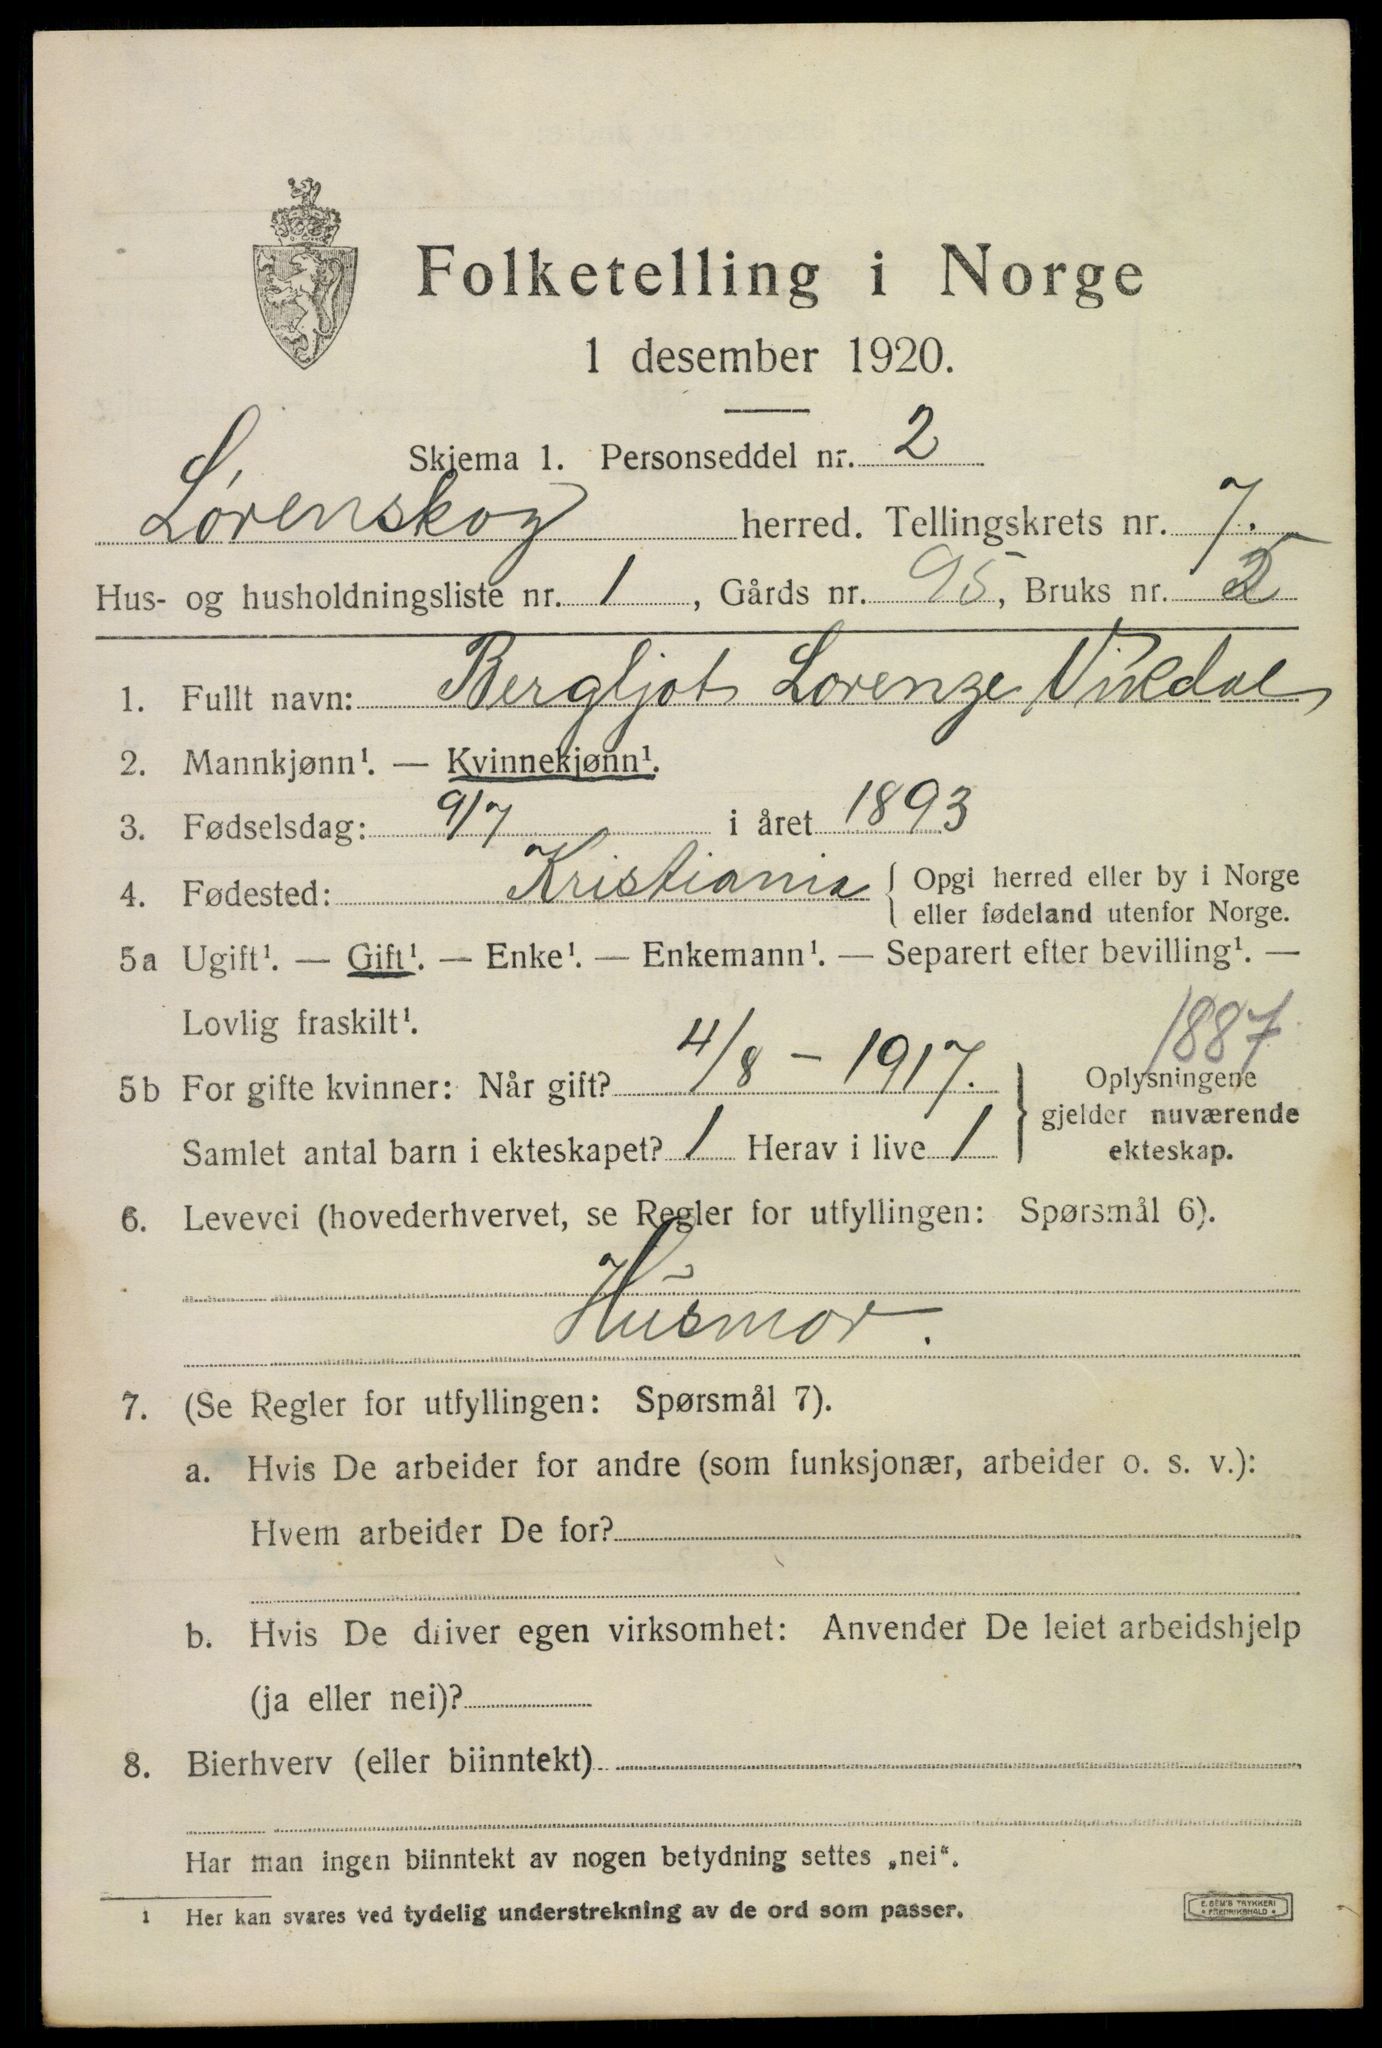 Folketelling i Norge
1 desember 1920.
Skjema 1. Personseddel nr. 2
Lørenskog herred. Tellingskrets nr. 7.
Hus- og husholdningsliste nr. 1, Gårds nr. 95, Bruks nr. 2
1. Fullt navn: Bergljot Lorenze
2. Mannkjønn¹. — Kvinnekjønn¹.
3. Fødselsdag: 9/7 i året 1893
4. Fødested: Kristiania { Opgi herred eller by i Norge
eller fødeland utenfor Norge.
5a Ugift¹. — Gift¹. — Enke¹. — Enkemann¹. — Separert efter bevilling¹. —
Lovlig fraskilt¹.
1887
5b For gifte kvinner: Når gift? 4/8 – 1917. } Oplysningene
gjelder nuværende
Samlet antal barn i ekteskapet? 1 Herav i live 1 ekteskap.
6. Levevei (hovederhvervet, se Regler for utfyllingen: Spørsmål 6).
Husmor.
7. (Se Regler for utfyllingen: Spørsmål 7).
a. Hvis De arbeider for andre (som funksjonær, arbeider o. s. v.):
Hvem arbeider De for?
b. Hvis De driver egen virksomhet: Anvender De leiet arbeidshjelp
(ja eller nei)?
8. Bierhverv (eller biinntekt)
Har man ingen biinntekt av nogen betydning settes „nei“.
1 Her kan svares ved tydelig understrekning av de ord som passer.
E. SEM'S TRYKKERI
• FREDRIKSHALD •